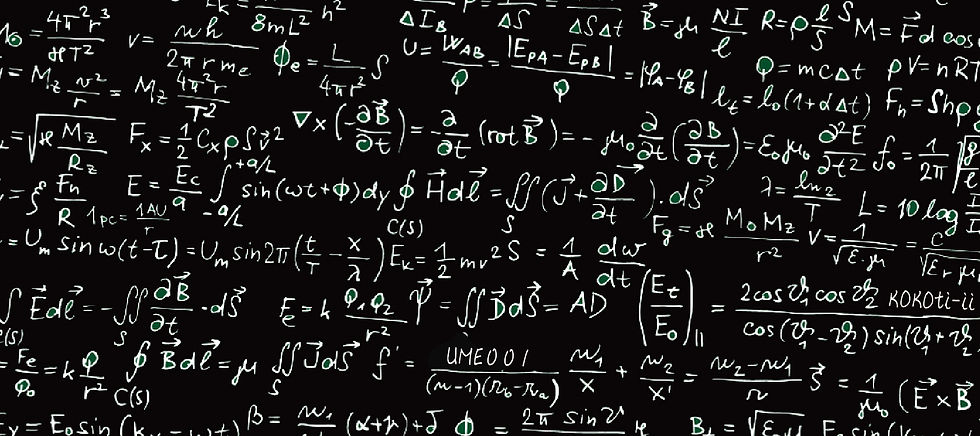 4π²r³ / ϰT²   v = nh / 2πrmₑ   8mL²   h²   ΔI_B   ΔS   ΔSΔt   B⃗ = μ NI / ℓ   R = ρ ℓ / S   M = F⃗d cos
Φₑ = L / 4πr² S   U = W_AB / Q = |E_PA − E_PB| / Q = |φ_A − φ_B|   Q = mcΔt   pV = nRT
M_z v² / r = M_z 4π²r / T²   ℓ_t = ℓ₀(1+αΔt)   F_h = Shρ
= √(ϰ M_z / R_z)   F_x = ½ C_x ρSv²   ∇ × (−∂B⃗/∂t) = −∂/∂t (rot B⃗) = −μ₀ ∂/∂t (∂B/∂t) = ε₀μ₀ ∂²E/∂t²   f₀ = 1 / 2π
F_n / R   1pc = 1AU / r   E = E_c / a ∫ +a/2 −a/2 sin(ωt+φ)dy   ∮ H⃗dℓ⃗ = ∬ (J⃗ + ∂D⃗/∂t).dS⃗   C(S)   S   λ = ln 2 / T   L = 10 log I
= U_m sin ω(t−τ) = U_m sin 2π(t/T − x/λ)   E_k = ½ mv²   S = 1/A dw/dt   F_g = ϰ M₀M_z / r²   v = 1 / √ε.μ = c / √ε_r μ
∫ E⃗dℓ⃗ = −∬ ∂B⃗/∂t · dS⃗   S   Fₑ = k Q₁Q₂ / r²   Ψ⃗ = ∬ D⃗dS⃗ = AD   (E_t / E₀)∥ = 2cos ϑ₁ cos ϑ₂ KOKOti-ii / cos(ϑ₁−ϑ₂) sin(ϑ₁+ϑ₂
= Fₑ / Q₀ = k Q / r²   ∮ B⃗dℓ⃗ = μ ∬ J⃗dS⃗   C(S)   S   f' = UME001 / (n−1)(r₀−rₐ)   n₁/x + n₂/x' = n₂−n₁ / r   S⃗ = 1/μ₀ (E⃗ × B⃗
= E₀ sin(kₓ − ωt)   β = n₁ (α+γ)+δ   Φ = 2π sin ϑ